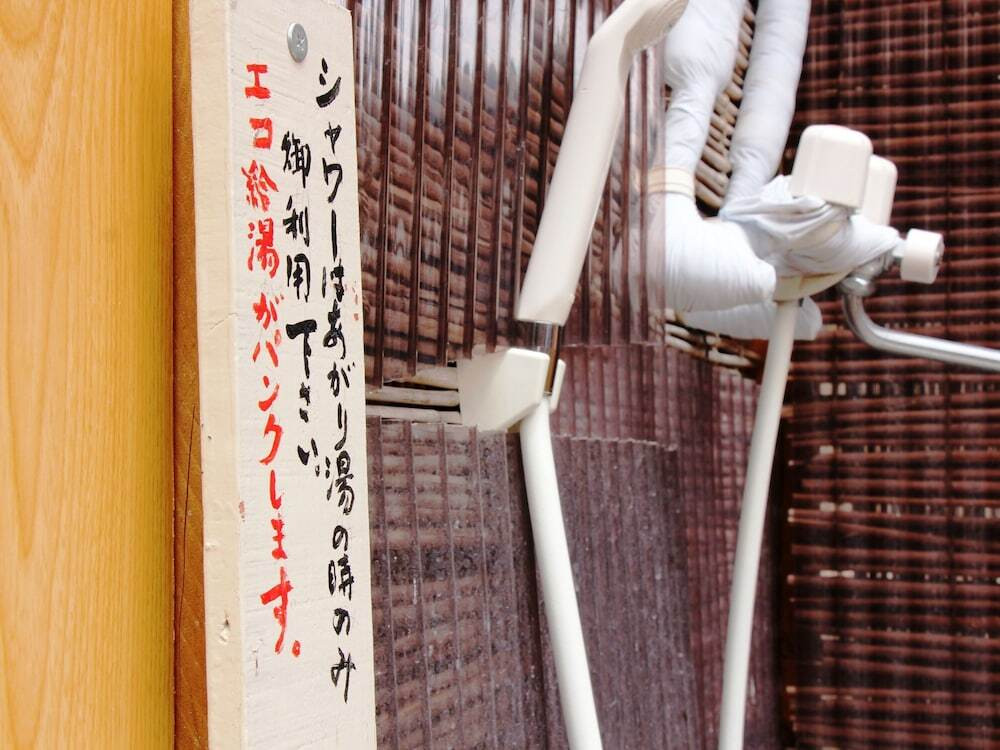 シャワーはあがり湯の時のみ
御利用下さい。
エコ給湯がパンクします。